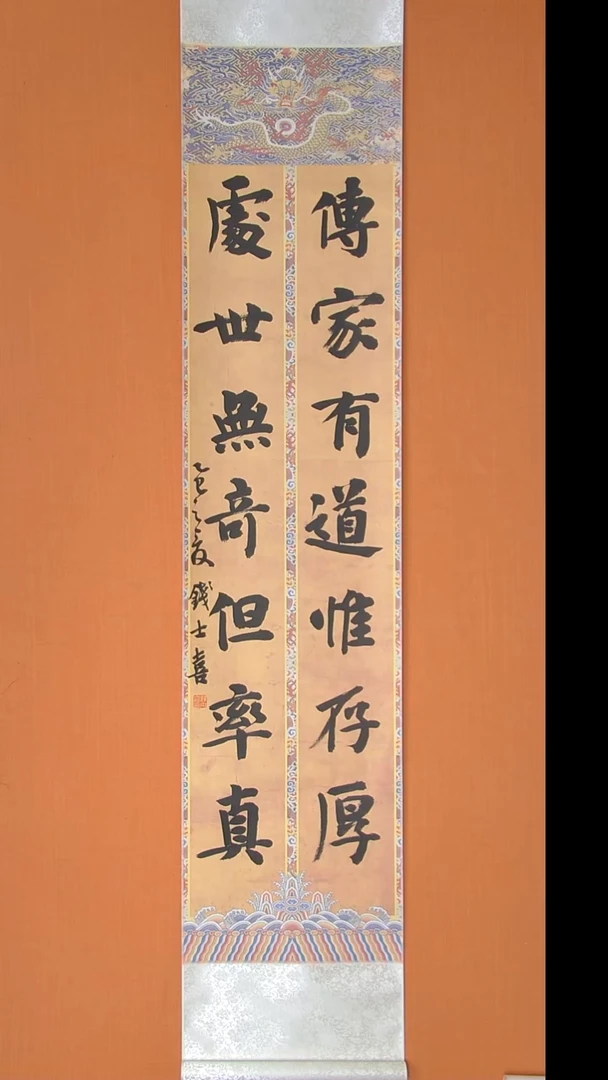 傳家有道惟存厚
處世無奇但率真
乙巳之夏 錢士喜